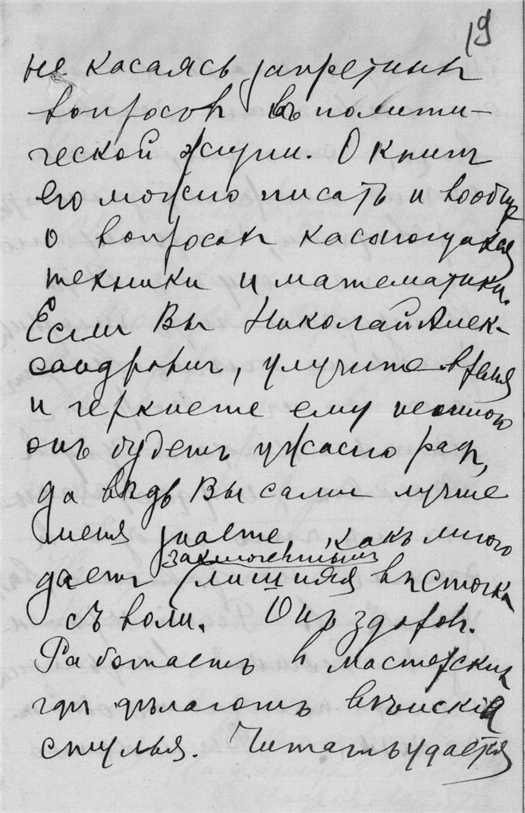 19
не касаясь запретныхъ
вопросовъ въ полити-
ческой жизни. О книгѣ
его можно писать и вообще
о вопросахъ касающихся
техники и математики.
Если Вы Николай Алек-
сандровичъ, улучите время
и черкнете ему немного
онъ будетъ ужасно радъ,
да вѣдь Вы сами лучше
меня знаете, какъ много
заключеннымъ
даетъ лишняя вѣсточка
съ воли. Онъ здоровъ.
Работаетъ въ мастерскихъ
гдѣ дѣлаютъ вѣнскія
стулья. Читать удается